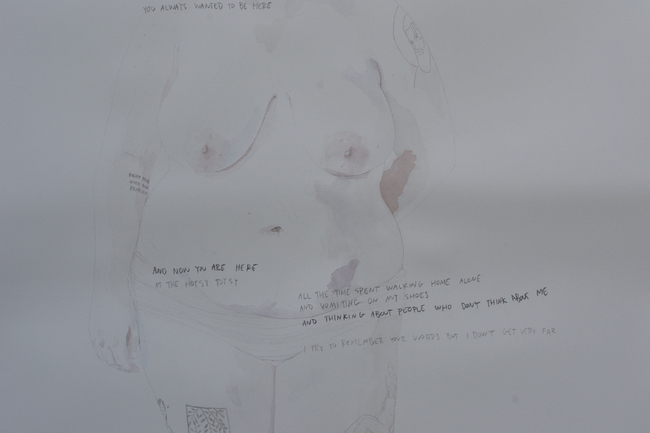 YOU ALWAYS WANTED TO BE HERE
AND NOW YOU ARE HERE
IN THE HOTSY TOTSY
ALL THE TIME SPENT WALKING HOME ALONE
AND VOMITING ON MY SHOES
AND THINKING ABOUT PEOPLE WHO DON'T THINK ABOUT ME
I TRY TO REMEMBER YOUR WORDS BUT I DON'T GET VERY FAR